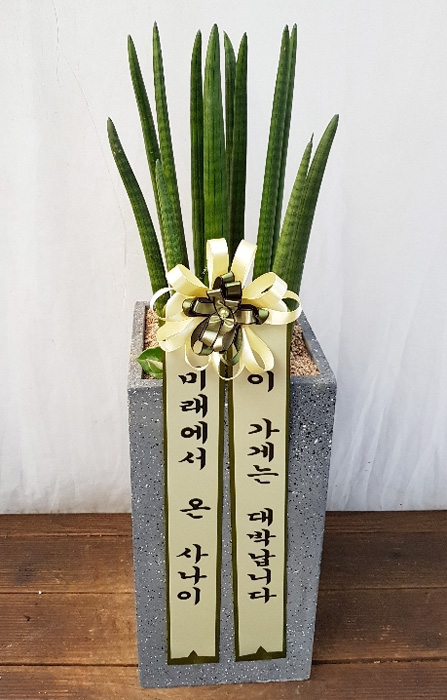 이 가게는 대박납니다
미래에서 온 사나이